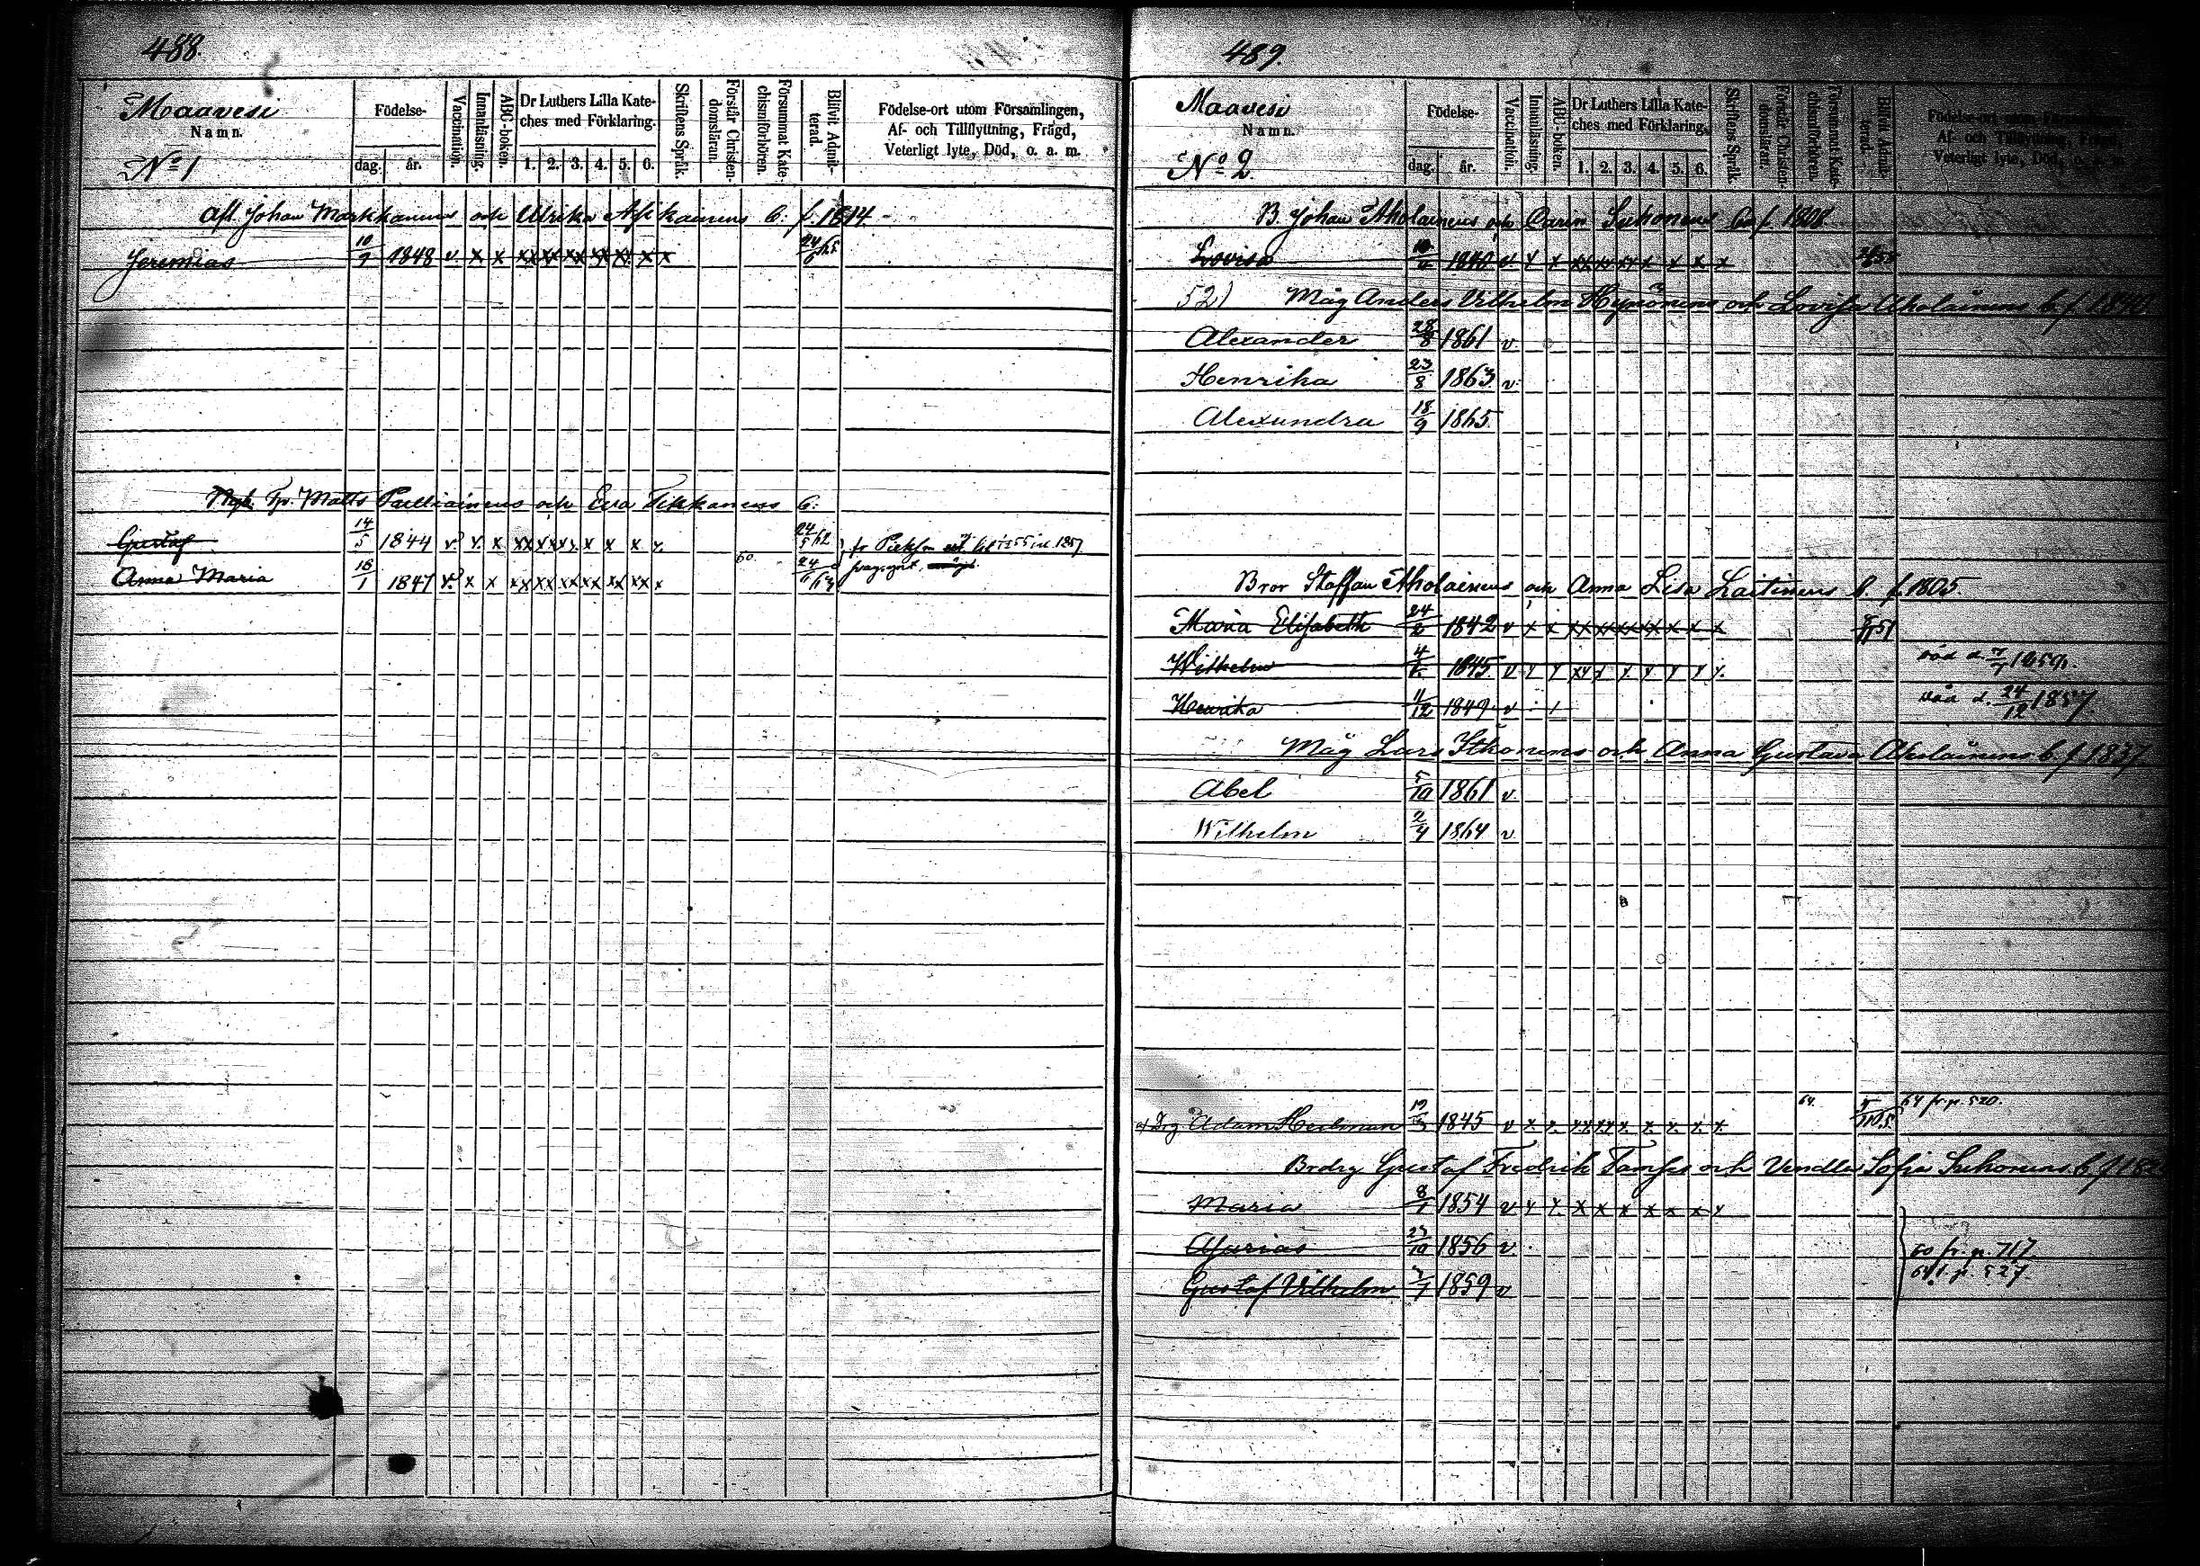 488.
Maavesi
Namn.
No 1
Födelse-
dag. år.
Vaccination.
Innanläsning.
ABC-boken.
Dr Luthers Lilla Kate-
ches med Förklaring.
1. 2. 3. 4. 5. 6.
Skriftens Språk.
Förstår Christen-
domsläran.
Försummat Kate-
chismiförhören.
Blifvit Admit-
terad.
Födelse-ort utom Församlingen,
Af- och Tillflyttning, Frägd,
Veterligt lyte, Död, o. a. m.
Afl. Johan Markkanens och Ulrika b. f. 1814
Jeremias 10/9 1848 v x x xx xx xx xx xx x x
Matts Pulliainens och Eva Tikkanens b.
Gustaf 14/5 1844 v x x 24/5 62
Anna Maria 18/1 1847 v x x xx xx xx xx xx xx x 60. 24/6 63
489.
Maavesi
Namn.
No 2
Födelse-
dag. år.
Vaccination.
Innanläsning.
ABC-boken.
Dr Luthers Lilla Kate-
ches med Förklaring.
1. 2. 3. 4. 5. 6.
Skriftens Språk.
Förstår Christen-
domsläran.
Försummat Kate-
chismiförhören.
Blifvit Admit-
terad.
Födelse-ort utom Församlingen,
Af- och Tillflyttning, Frägd,
Veterligt lyte, Död, o. a. m.
B. Johan Aholainens och Carin Suhonens b. f. 1808
Lovisa 1840 v x x xx xx xx x x x x
52) Måg Anders Vilhelm Hyvönens och Lovisa Aholainens b. f. 1840
Alexander 28/8 1861 v
Henrika 23/8 1863 v
Alexandra 18/9 1865
Bror Staffan Aholainens och Anna Lisa Laitinens b. f. 1805.
Maria Elisabeth 24/2 1842 v x x xx xx xx xx x x x
Wilhelm 1845 v x x xx x x x x x x
Henrika 11/12 1849 v död d. 24/12 1857
Måg Lars Ihonens och Anna Gustava Aholainens b. f. 1837
Abel 5/10 1861 v.
Wilhelm 2/4 1864 v
Drg Adam Heilman 1845 v x x 64. 64 fr. p. 520.
Brdrg Gustaf Fredrik och Vendla Sofia Suhonens b. f.
Maria 8/1 1854 v x x x x x x x x x
Asarias 23/10 1856 v 60 fr. p. 717
Gustaf Vilhelm 1859 v 64 t. p. 527